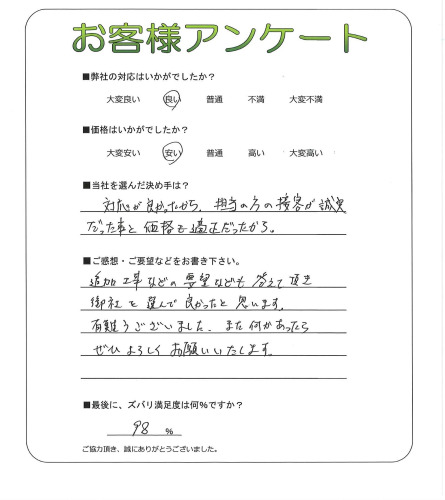 お客様アンケート
■弊社の対応はいかがでしたか？
大変良い 良い 普通 不満 大変不満
■価格はいかがでしたか？
大変安い 安い 普通 高い 大変高い
■当社を選んだ決め手は？
対応が良かったから、担当の方の接客が誠実
だった事と価格も適正だったから。
■ご感想・ご要望などをお書き下さい。
追加工事などの要望なども答えて頂き
御社を選んで良かったと思います。
有難うございました、また何かあったら
ぜひよろしくお願いいたします。
■最後に、ズバリ満足度は何％ですか？
98 ％
ご協力頂き、誠にありがとうございました。